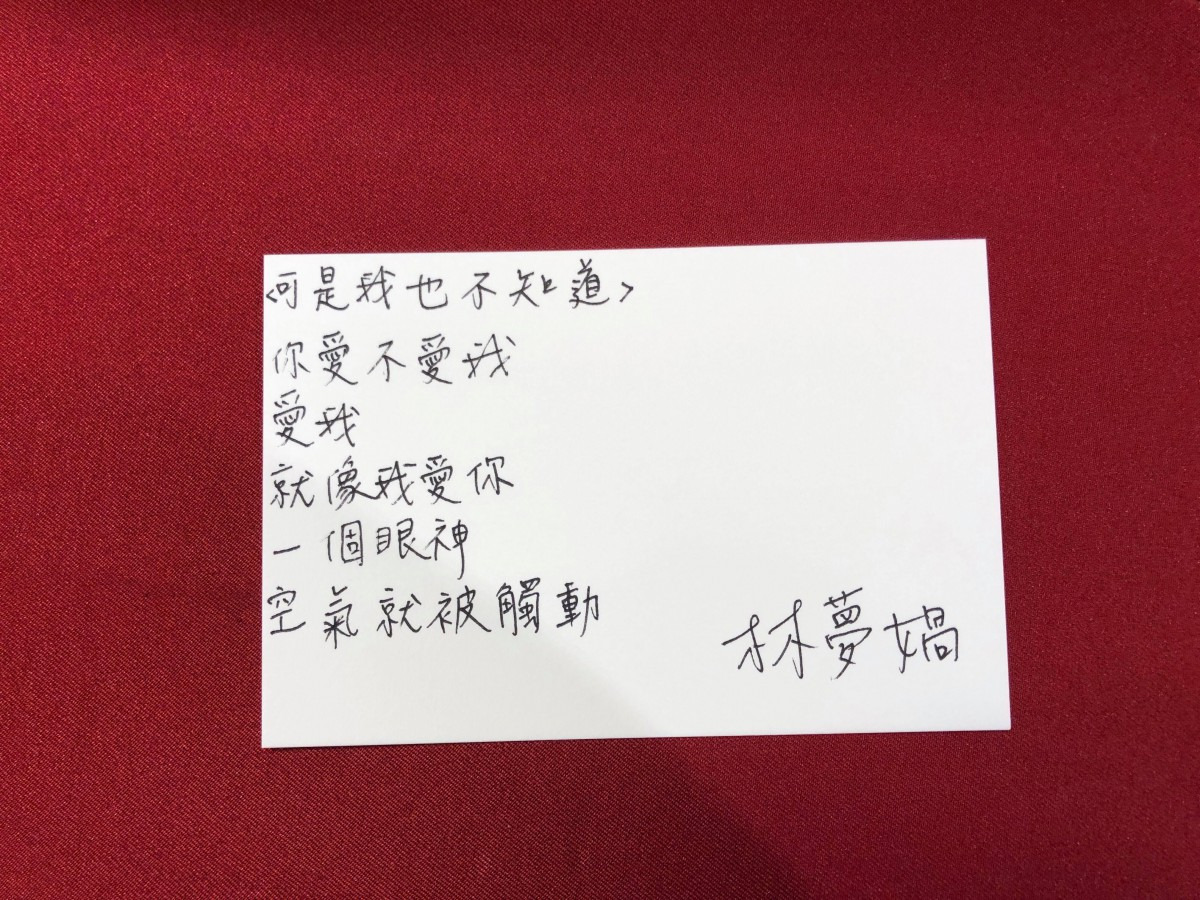 <可是我也不知道>
你愛不愛我
愛我
就像我愛你
一個眼神
空氣就被觸動
林夢媧